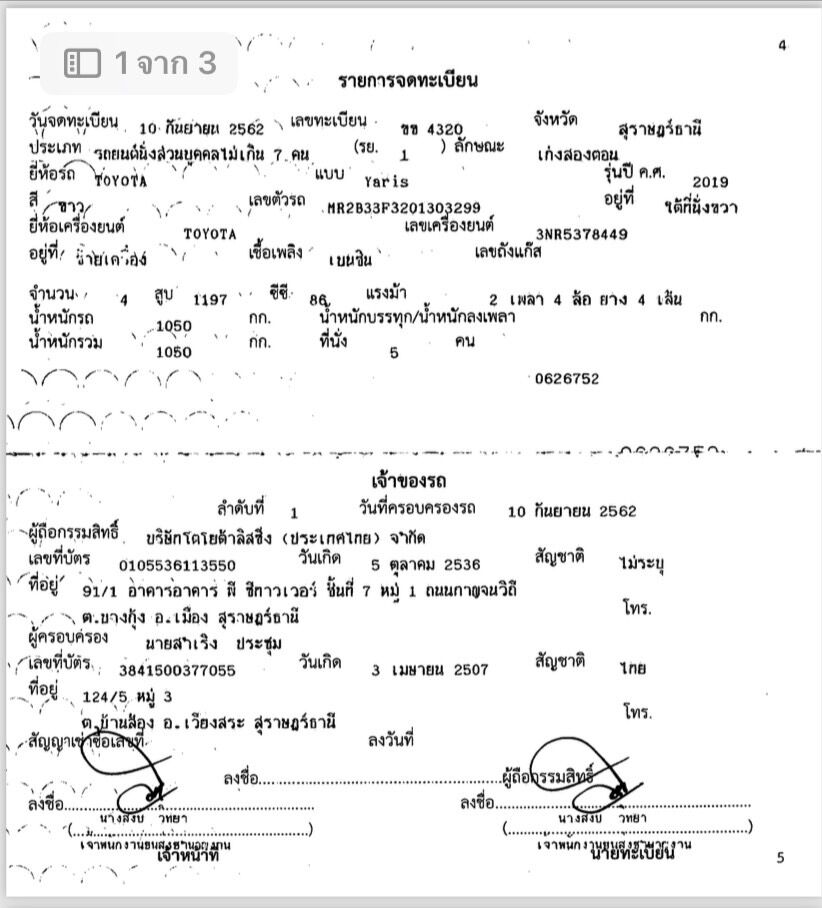 1 จาก 3
4
รายการจดทะเบียน
วันจดทะเบียน 10 กันยายน 2562 เลขทะเบียน ขข 4320 จังหวัด สุราษฎร์ธานี
ประเภท รถยนต์นั่งส่วนบุคคลไม่เกิน 7 คน (รย. 1 ) ลักษณะ เก๋งสองตอน
ยี่ห้อรถ TOYOTA แบบ Yaris รุ่นปี ค.ศ. 2019
สี ขาว เลขตัวรถ MR2B33F3201303299 อยู่ที่ ใต้ที่นั่งขวา
ยี่ห้อเครื่องยนต์ TOYOTA เลขเครื่องยนต์ 3NR5378449
อยู่ที่ ซ้ายเครื่อง เชื้อเพลิง เบนซิน เลขถังแก๊ส
จำนวน 4 สูบ 1197 ซีซี 86 แรงม้า 2 เพลา 4 ล้อ ยาง 4 เส้น
น้ำหนักรถ 1050 กก. น้ำหนักบรรทุก/น้ำหนักลงเพลา กก.
น้ำหนักรวม 1050 กก. ที่นั่ง 5 คน
0626752
0626752
เจ้าของรถ
ลำดับที่ 1 วันที่ครอบครองรถ 10 กันยายน 2562
ผู้ถือกรรมสิทธิ์ บริษัทโตโยต้าลิสซิ่ง (ประเทศไทย) จำกัด
เลขที่บัตร 0105536113550 วันเกิด 5 ตุลาคม 2536 สัญชาติ ไม่ระบุ
ที่อยู่ 91/1 อาคารอาคาร พี ซีทาวเวอร์ ชั้นที่ 7 หมู่ 1 ถนนกาญจนวิถี
ต.บางกุ้ง อ.เมือง สุราษฎร์ธานี โทร.
ผู้ครอบครอง นายสำเริง ประชุม
เลขที่บัตร 3841500377055 วันเกิด 3 เมษายน 2507 สัญชาติ ไทย
ที่อยู่ 124/5 หมู่ 3
ต.บ้านส้อง อ.เวียงสระ สุราษฎร์ธานี โทร.
สัญญาเช่าซื้อเลขที่ ลงวันที่
ลงชื่อ ผู้ถือกรรมสิทธิ์
ลงชื่อ ลงชื่อ
นางสงบ วิทยา นางสงบ วิทยา
เจ้าพนักงานขนส่งชำนาญงาน เจ้าพนักงานขนส่งชำนาญงาน
เจ้าหน้าที่ นายทะเบียน
5